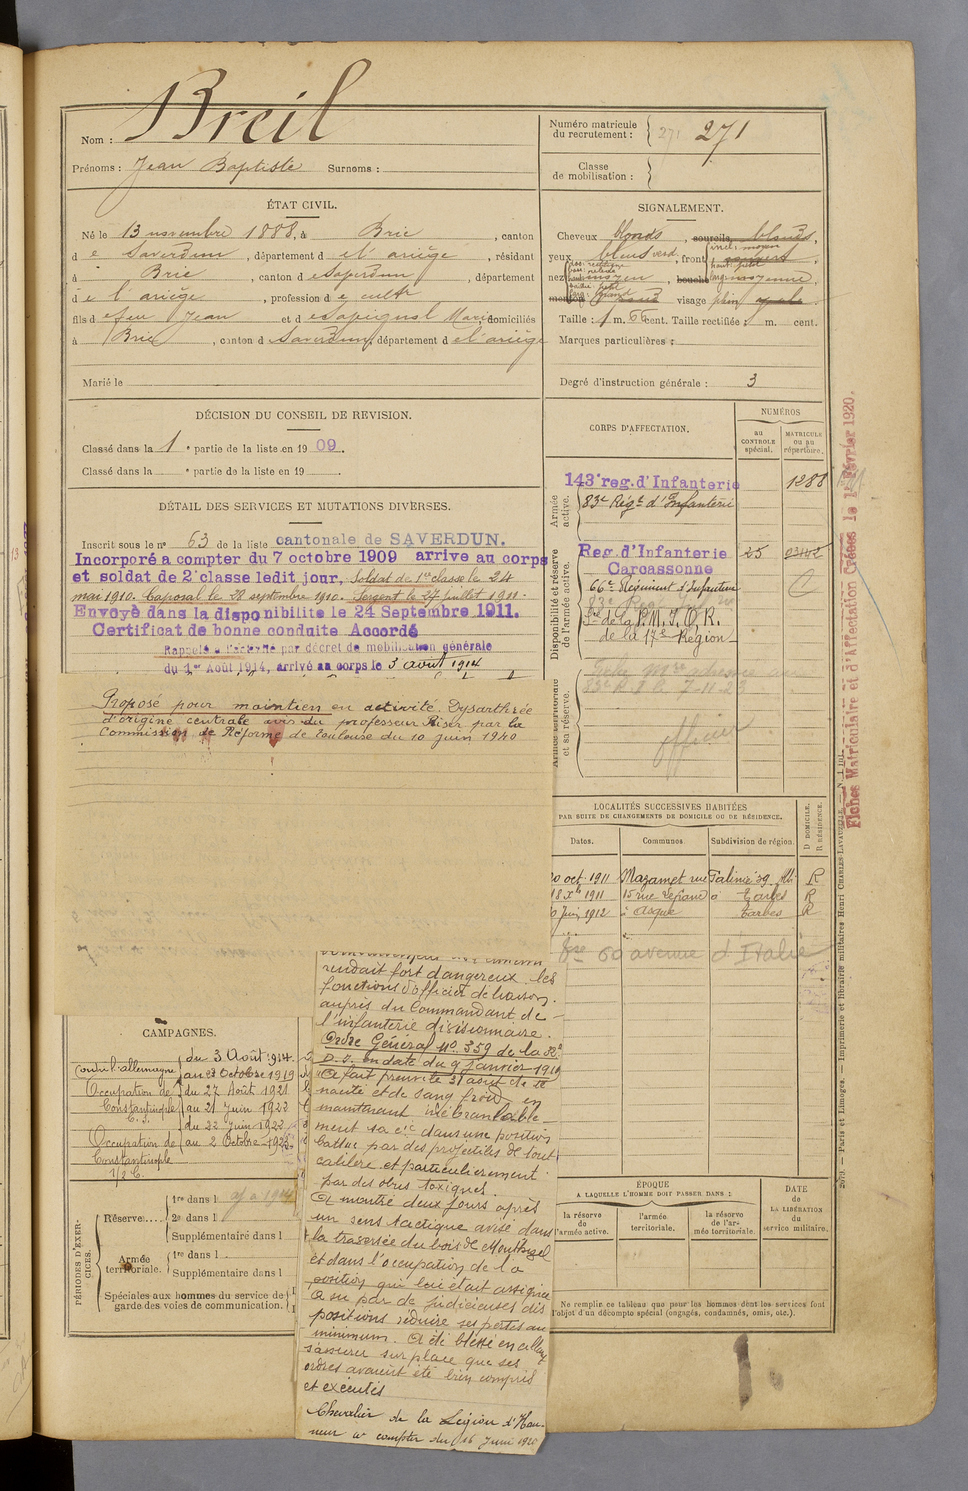 Nom : Breil
Prénoms : Jean Baptiste Surnoms :
ÉTAT CIVIL.
Né le 13 novembre 1888, à Brie, canton
de Saverdun, département de l'ariège, résidant
à Brie, canton de Saverdun, département
de l'ariège, profession de cultr
fils de feu Jean et de Marie, domiciliés
à Brie, canton de Saverdun, département de l'ariège
Marié le
DÉCISION DU CONSEIL DE REVISION.
Classé dans la 1e partie de la liste en 1909.
Classé dans la e partie de la liste en 19
DÉTAIL DES SERVICES ET MUTATIONS DIVERSES.
Inscrit sous le no 63 de la liste cantonale de SAVERDUN.
Incorporé a compter du 7 octobre 1909 arrive au corps
et soldat de 2e classe ledit jour. Soldat de 1re classe le 24
mai 1910. Caporal le 28 septembre 1910. Sergent le 27 juillet 1911.
Envoyè dans la disponibilite le 24 Septembre 1911.
Certificat de bonne conduite Accordé
Rappelé à l'activité par décret de mobilisation générale
du 1er Août 1914, arrivé au corps le 3 aout 1914
Proposé pour maintien en activité. Dysarthrée
d'origine centrale avis du professeur Riser par la
Commission de Réforme de Toulouse du 10 juin 1940
rendait fort dangereux les
fonctions d'officier de liaison
auprès du Commandant de
l'infanterie divisionnaire.
Ordre Général No 359 de la
D.O. en date du 9 janvier 1919
"A fait preuve le 31 aout de te
nacité et de sang froid en
maintenant inébranlable
ment sa cie dans une position
battue par des projectiles de tout
calibre et particulierement
par des obus toxiques.
A montré deux jours après
un sens tactique avisé dans
la traversée du bois de
et dans l'occupation de la
position qui lui était assignée
A su par de judicieuses dis
positions réduire ses pertes au
minimum. A été blessé en allant
s'assurer sur place que ses
ordres avaient été bien compris
et exécutés
Chevalier de la Légion d'Hon-
neur à compter du 16 Juin 1920
CAMPAGNES.
Contre l'allemagne du 3 Août 1914
au 23 Octobre 1919
Occupation de du 27 Août 1921
Constantinople au 21 Juin 1922
du 22 Juin 1922
Occupation de au 2 Octobre 1923
Constantinople
1/2 C
PÉRIODES D'EXERCICES.
Réserve.... 1re dans l
2e dans l
Supplémentaire dans l
Armée territoriale. 1re dans l
Supplémentaire dans l
Spéciales aux hommes du service de
garde des voies de communication.
Numéro matricule
du recrutement : 271 271
Classe
de mobilisation :
SIGNALEMENT.
Cheveux blonds, sourcils blonds,
yeux bleus verd, front
nez moyen, bouche moyenne,
menton visage plein
Taille : 1 m. 66 cent. Taille rectifiée : m. cent.
Marques particulières :
Degré d'instruction générale : 3
CORPS D'AFFECTATION.
NUMÉROS
au CONTROLE spécial.
MATRICULE ou au répertoire.
Armée active.
143e reg. d'Infanterie 1288
83e Régt d'Infanterie
Disponibilité et réserve de l'armée active.
Reg. d'Infanterie 25
Carcassonne
66e Régiment d'Infanterie
de la P.M.I.O.R.
de la 17e Région
Armée territoriale et sa réserve.
83e R.I. le 7-11-23
officier
LOCALITÉS SUCCESSIVES HABITÉES
PAR SUITE DE CHANGEMENTS DE DOMICILE OU DE RÉSIDENCE.
Dates. Communes Subdivision de région. D DOMICILE. R RÉSIDENCE.
oct. 1911 Mazamet rue Galinié 39 Albi R
18 Xb 1911 15 rue à Tarbes R
Juin 1912 à Asque Tarbes R
60 avenue d'Italie
ÉPOQUE
A LAQUELLE L'HOMME DOIT PASSER DANS :
la réserve de l'armée active.
l'armée territoriale.
la réserve de l'armée territoriale.
DATE de LA LIBÉRATION du service militaire.
Ne remplir ce tableau que pour les hommes dont les services font
l'objet d'un décompte spécial (engagés, condamnés, omis, etc.).
Fiches Matriculaire et d'Affectation Créées le 1er Février 1920.
2079. — Paris et Limoges. — Imprimerie et librairie militaires Henri CHARLES-LAVAUZELLE.